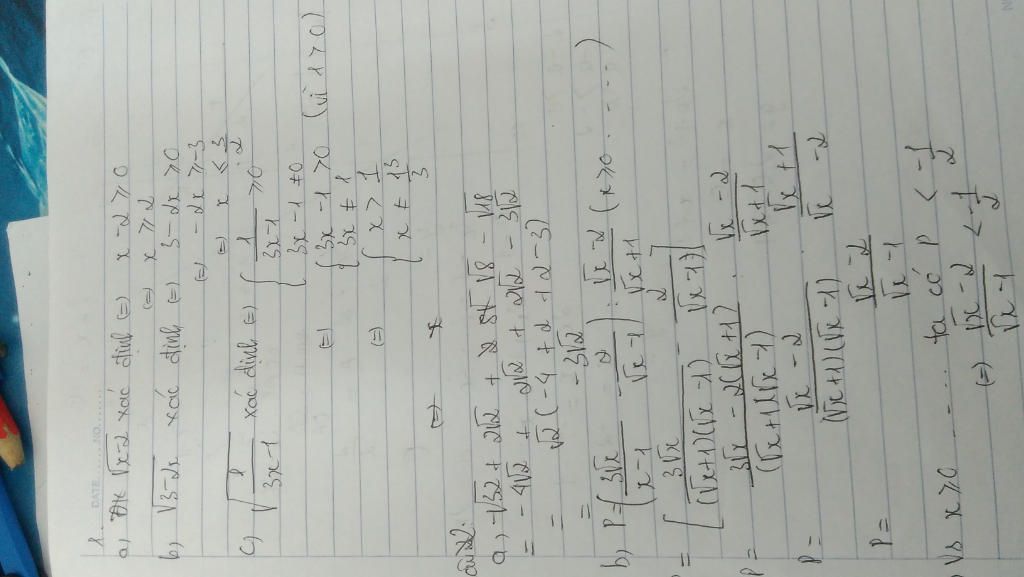 DATE........NO.........
1.
a) ĐK √(x-2) xác định (=) x-2 ≥ 0
(=) x ≥ 2
b) √(3-2x) xác định (=) 3-2x ≥ 0
(=) -2x ≥ -3
(=) x ≤ 3/2
c) √(1/(3x-1)) xác định (=) { 1/(3x-1) ≥ 0
3x-1 ≠ 0
(=) { 3x-1 > 0 (vì 1 > 0)
3x ≠ 1
(=) { x > 1/3
x ≠ 1/3
(=) x
Câu 2:
a) -√32 + 2√2 + √8 - √18
= -4√2 + 2√2 + 2√2 - 3√2
= √2(-4+2+2-3)
= -3√2
b) P = (3√x/(x-1) - 2/(√x-1)) : (√x-2)/(√x+1) (x ≥ 0 .....)
= [3√x/((√x+1)(√x-1)) - 2/(√x-1)]
P = (3√x - 2(√x+1))/((√x+1)(√x-1)) : (√x-2)/(√x+1)
P = (√x-2)/((√x+1)(√x-1)) . (√x+1)/(√x-2)
P = (√x-2)/(√x-1)
Vs x ≥ 0 ..... ta có P < -1/2
(=) (√x-2)/(√x-1) < -1/2